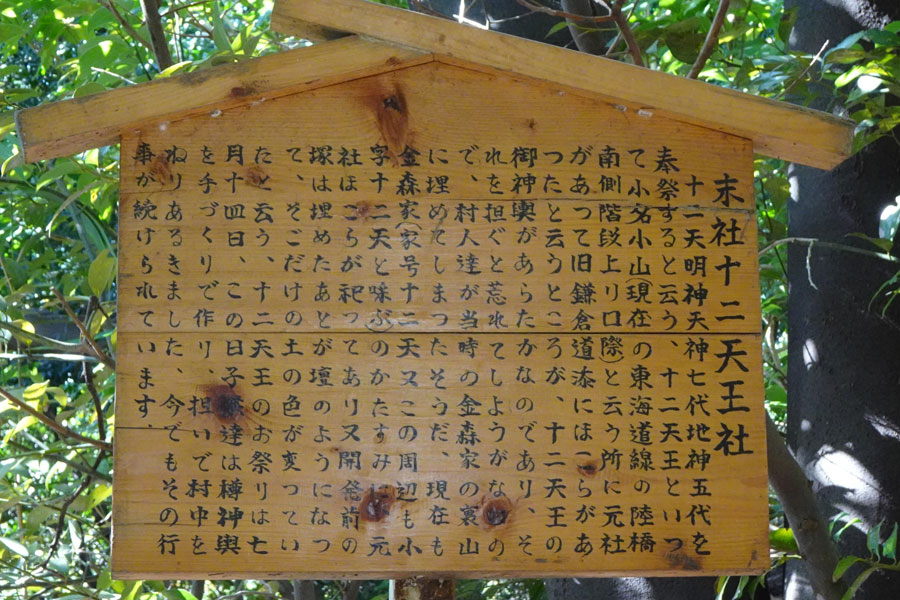 末社十二天王社
十二天明神天神七代地神五代を
奉祭すると云う、十二天王といつ
て小名小山(現在の東海道線の陸橋
南側階段上り口際)と云う所に元社
があつて旧鎌倉道添にほこらがあ
つたと云うところが、十二天王の
御神輿があらたかなのであり、そ
れを担ぐと荒れてしようがないの
で、村人達が当時の金森家の裏山
に埋めてしまつたそうだ、現在も
金森家(家号十二天又この周辺も小
字十二天と呼ぶ)のかたすみに元
社ほこらが祀つてあり又開発前の
塚は埋めたあとが壇のようになつ
て、そこだけの土の色が変つてい
たと云う、十二天王のお祭りは七
月十四日、この日子供達は樽神輿
を手づくりで作り、担いで村中を
ねりあるきました、今でもその行
事が続けられています、